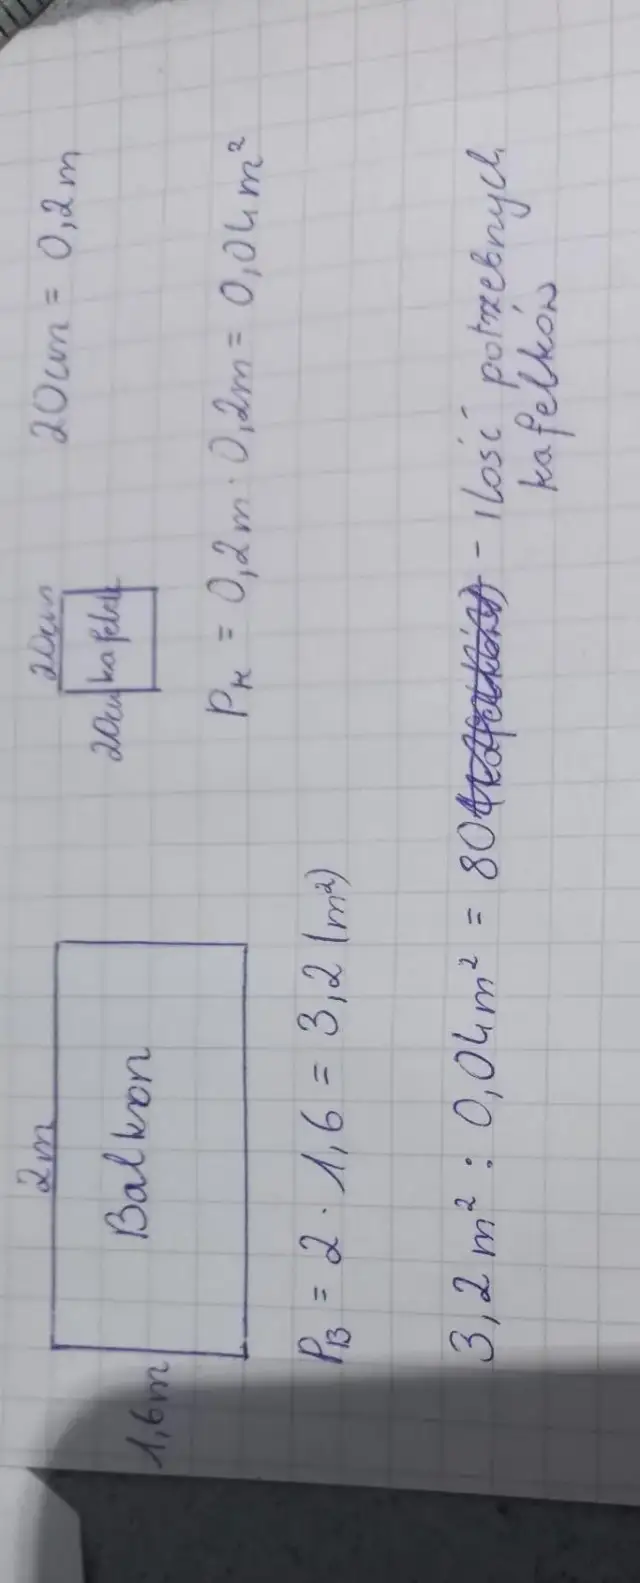 2m
Balkon
1,6m
20cm
20cm kafelek
20cm = 0,2m
P_B = 2 · 1,6 = 3,2 (m²)
P_K = 0,2m · 0,2m = 0,04m²
3,2m² : 0,04m² = 80 (kafelków) - ilość potrzebnych
kafelków